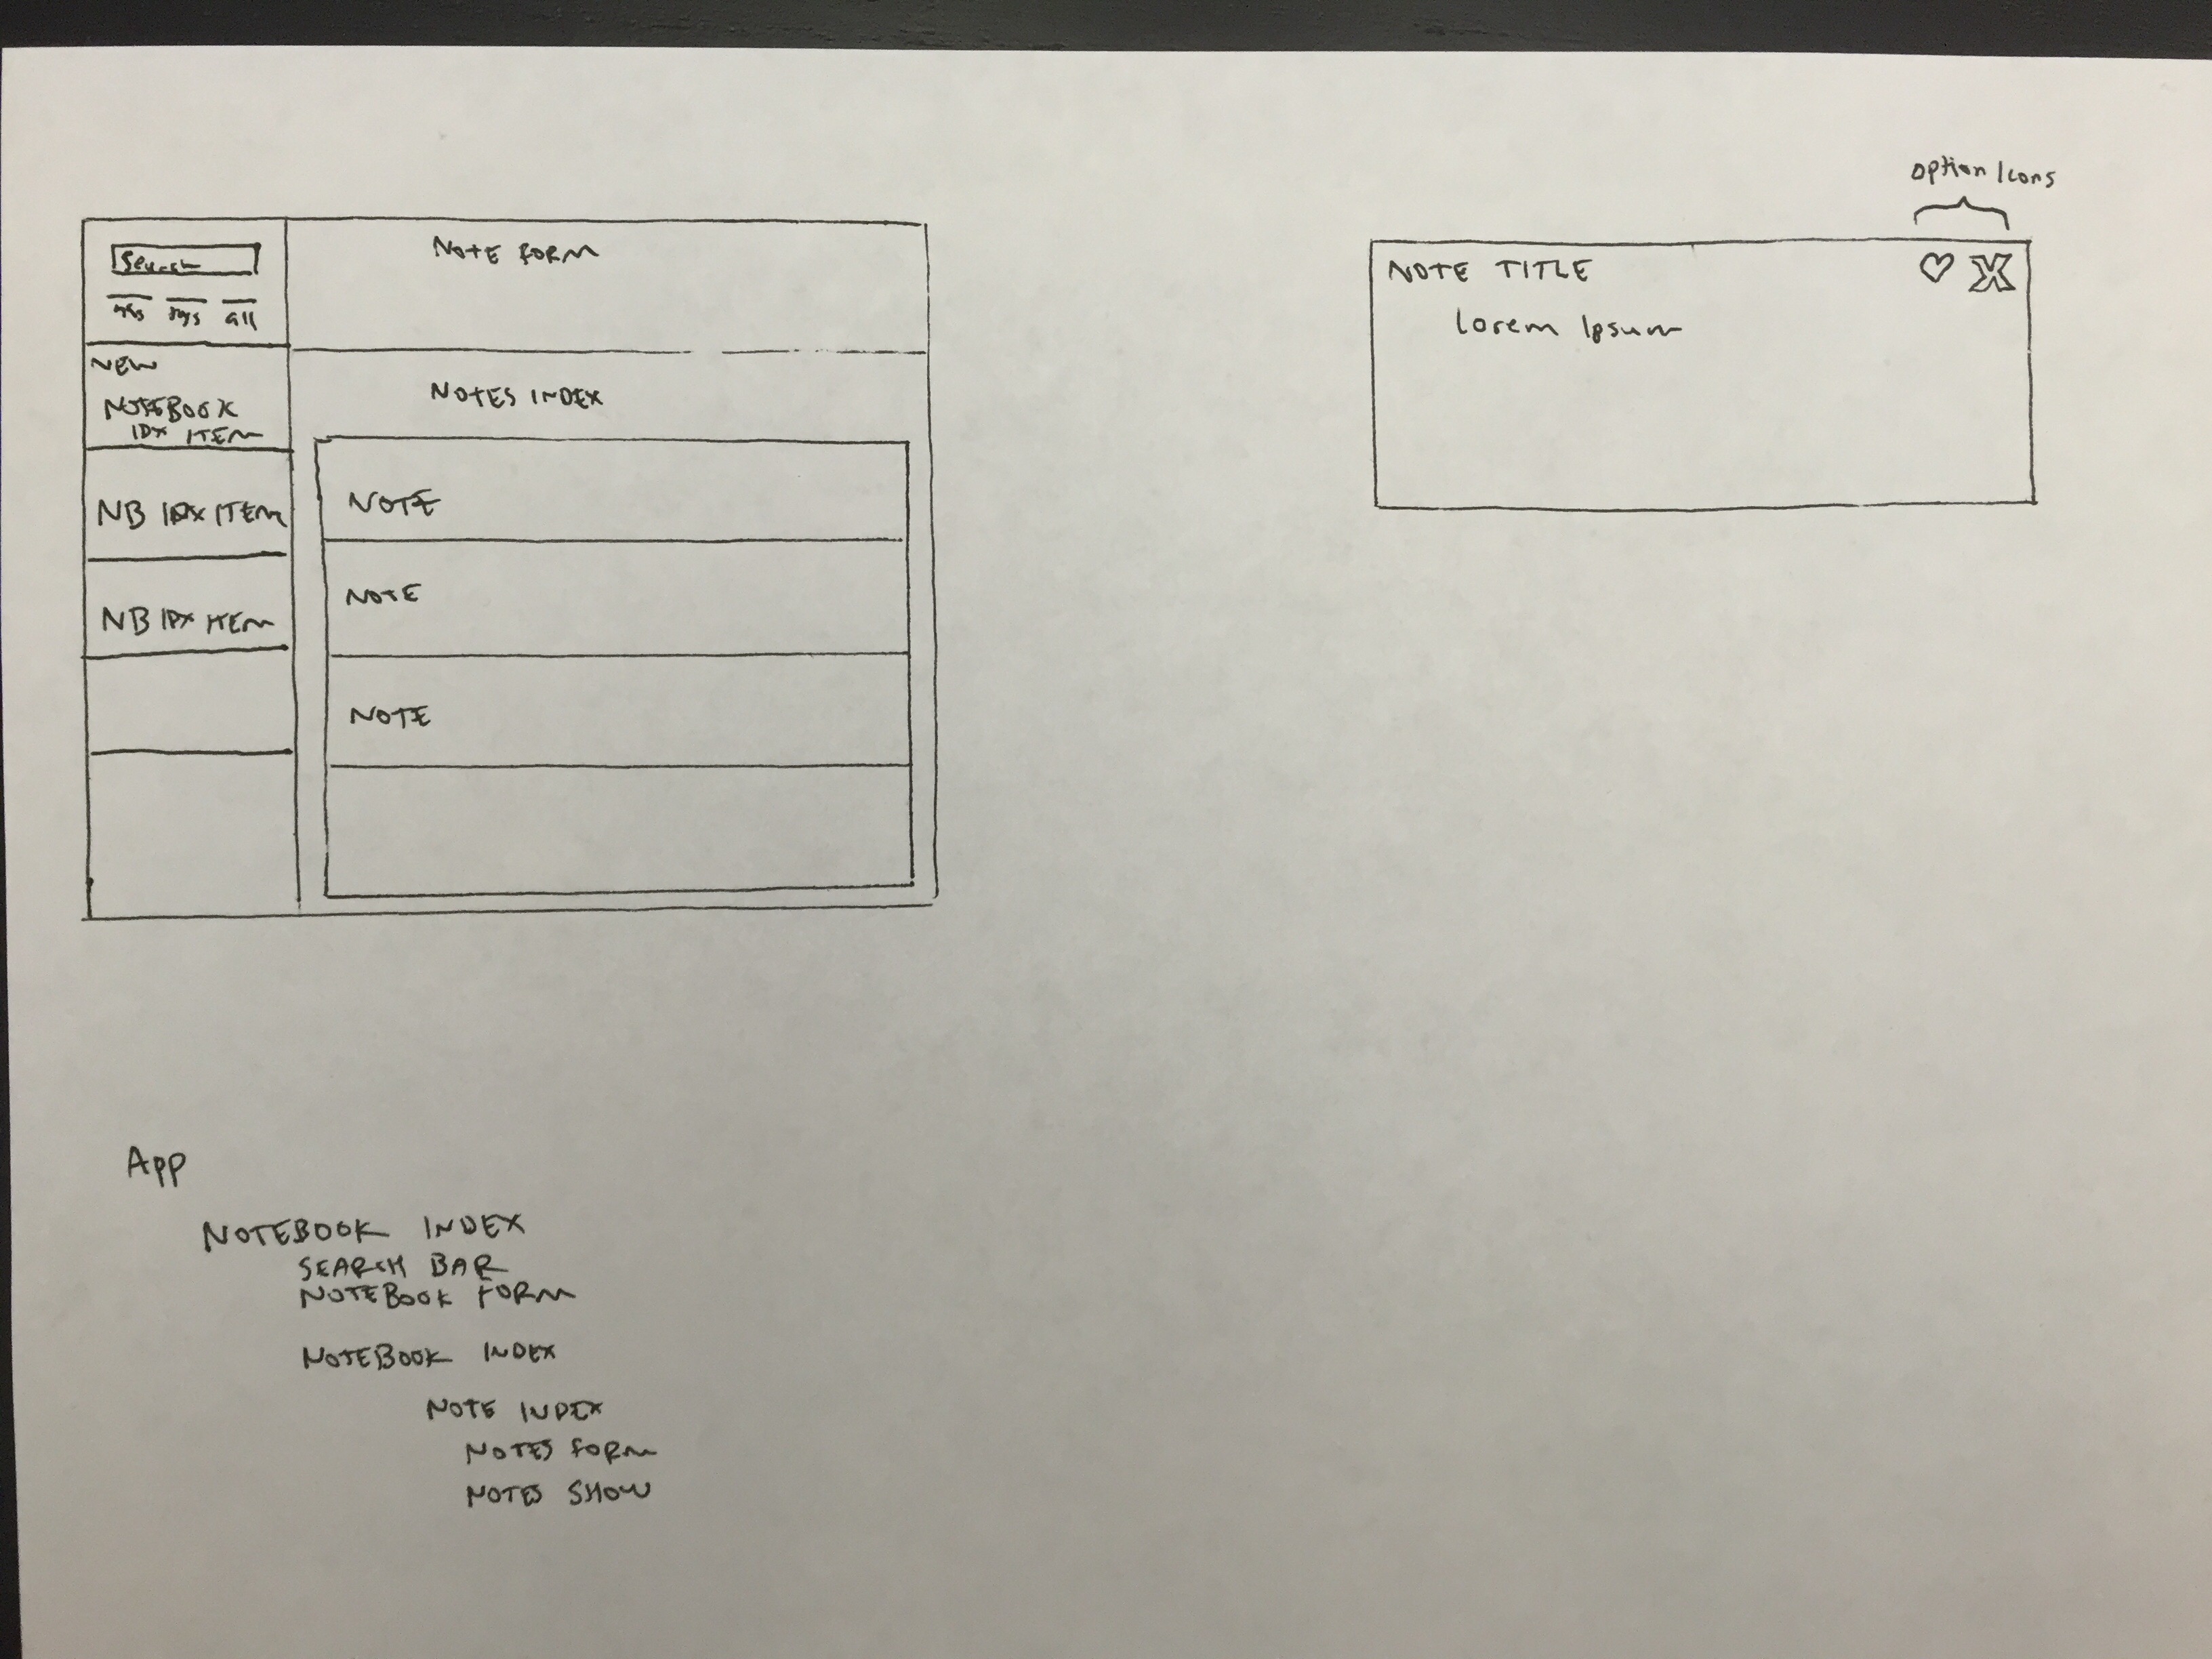 Search
all
NEW
NOTEBOOK
IDX ITEM
NB IDX ITEM
NB IDX ITEM
NOTE FORM
NOTES INDEX
NOTE
NOTE
NOTE
option Icons
NOTE TITLE
Lorem Ipsum
App
NOTEBOOK INDEX
SEARCH BAR
NOTEBOOK FORM
NOTEBOOK INDEX
NOTE INDEX
NOTES FORM
NOTES SHOW